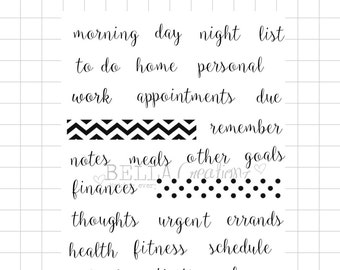 morning day night list
to do home personal
work appointments due
remember
notes meals other goals
BELLA Creations
finances
thoughts urgent errands
health fitness schedule